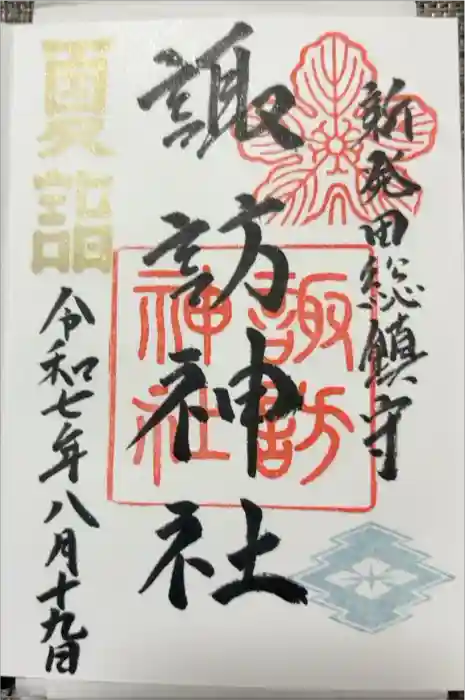 新発田総鎮守
諏訪神社
諏訪
神社
夏詣
令和七年八月十九日